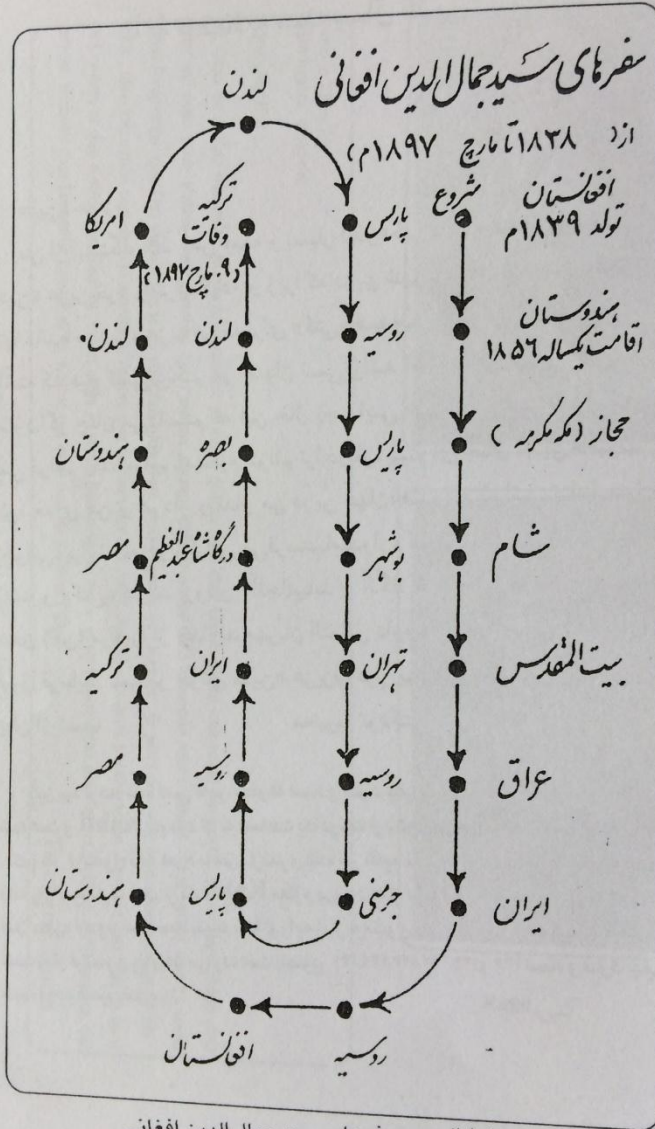 سفرهای سید جمال الدین افغانی
از ( ۱۸۳۸ تا مارچ ۱۸۹۷م )
شروع
افغانستان
تولد ۱۸۳۹م
هندوستان
اقامت یکساله ۱۸۵۶
حجاز ( مکه مکرمه )
شام
بیت المقدس
عراق
ایران
روسیه
افغانستان
هندوستان
مصر
ترکیه
مصر
هندوستان
لندن
امریکا
لندن
پاریس
روسیه
پاریس
بوشهر
تهران
روسیه
جرمنی
پاریس
روسیه
ایران
درگاه شاه عبدالعظیم
بصره
لندن
ترکیه
وفات
( ۹ مارچ ۱۸۹۷ )